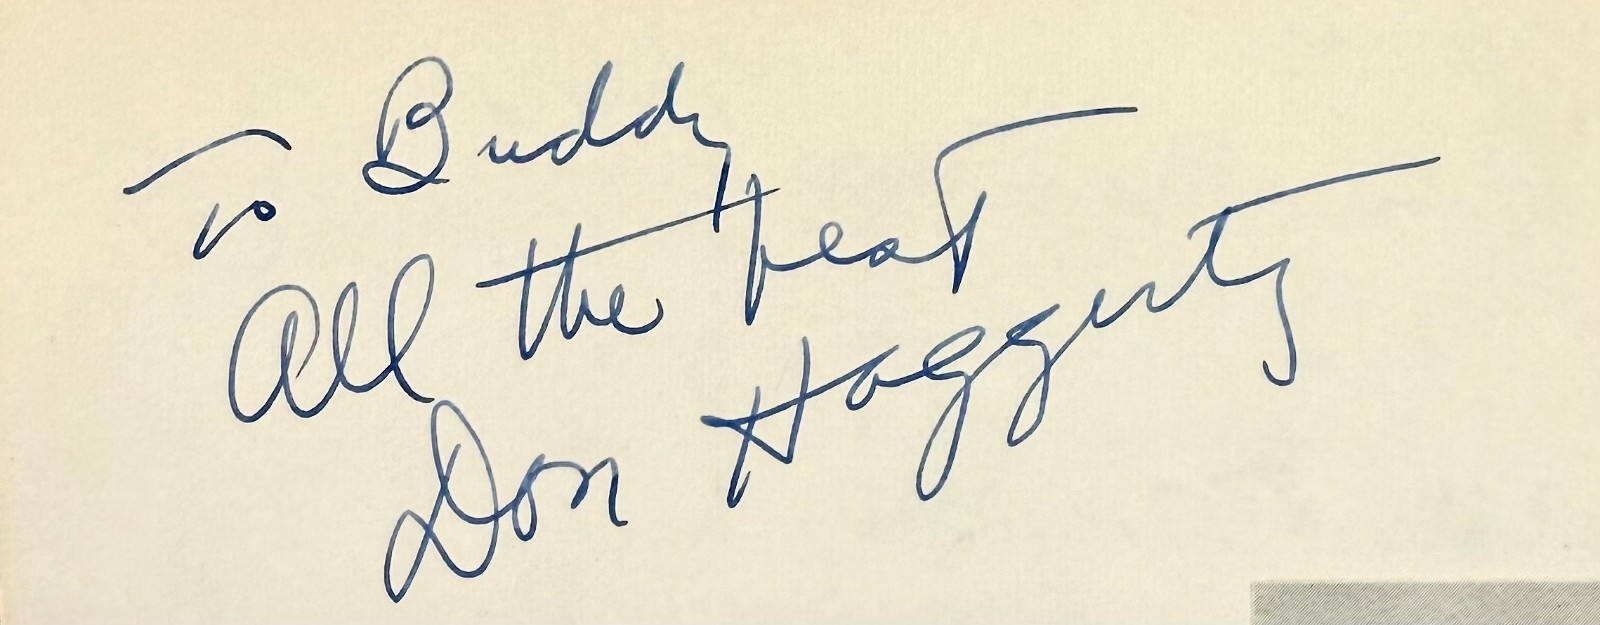 To Buddy
All the best
Don Haggerty